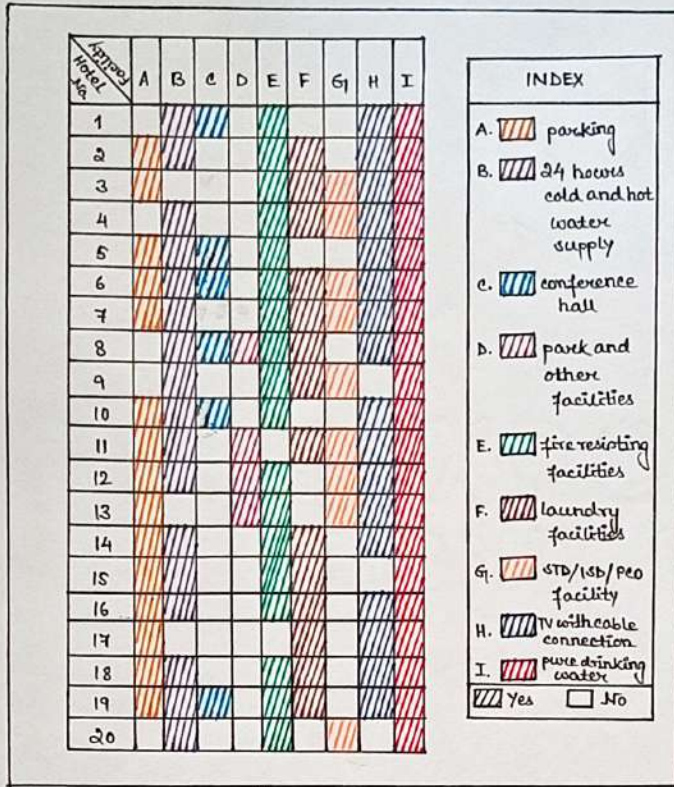 Facility
Hotel No. A B C D E F G H I
1
2
3
4
5
6
7
8
9
10
11
12
13
14
15
16
17
18
19
20
INDEX
A. parking
B. 24 hours
cold and hot
water
supply
C. conference
hall
D. park and
other
facilities
E. fire resisting
facilities
F. laundry
facilities
G. STD/ISD/PCO
facility
H. TV with cable
connection
I. pure drinking
water
Yes No